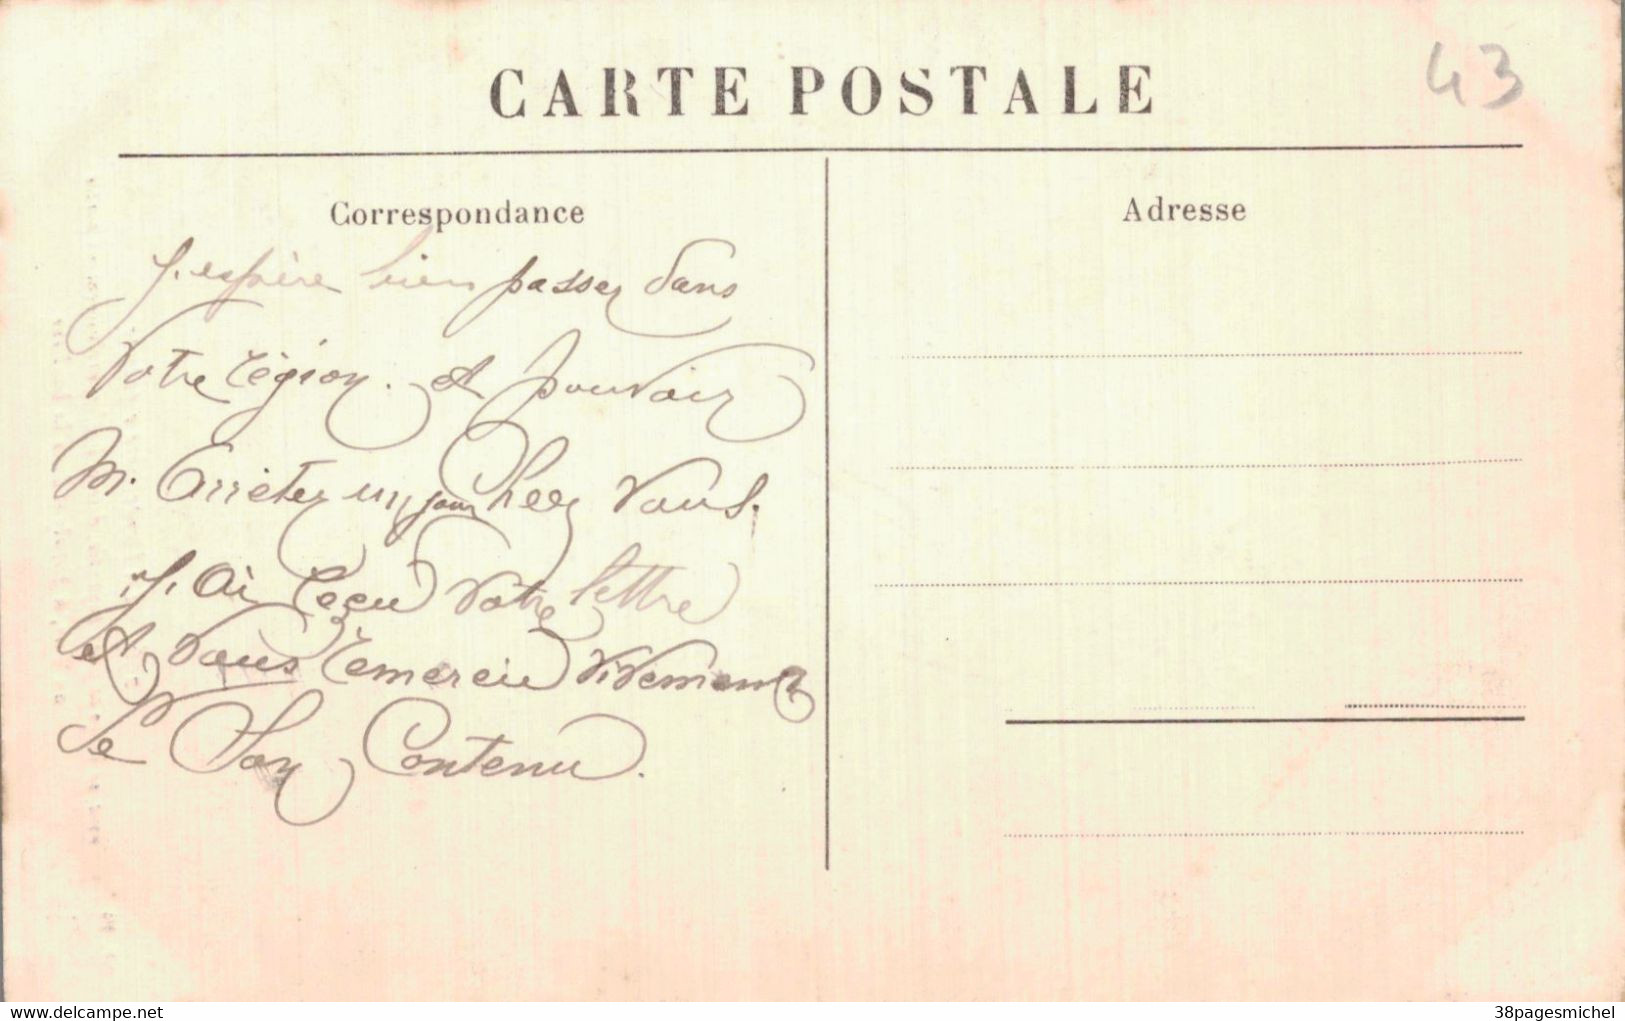 CARTE POSTALE
43
Correspondance
Adresse
J. espère bien passer dans
Votre région. et pouvoir
M. Arrêter un jour Chez Vous.
J. Ai reçu Votre lettre
et Vous remercie Vivement
de Son Contenu.
www.delcampe.net
38pagesmichel